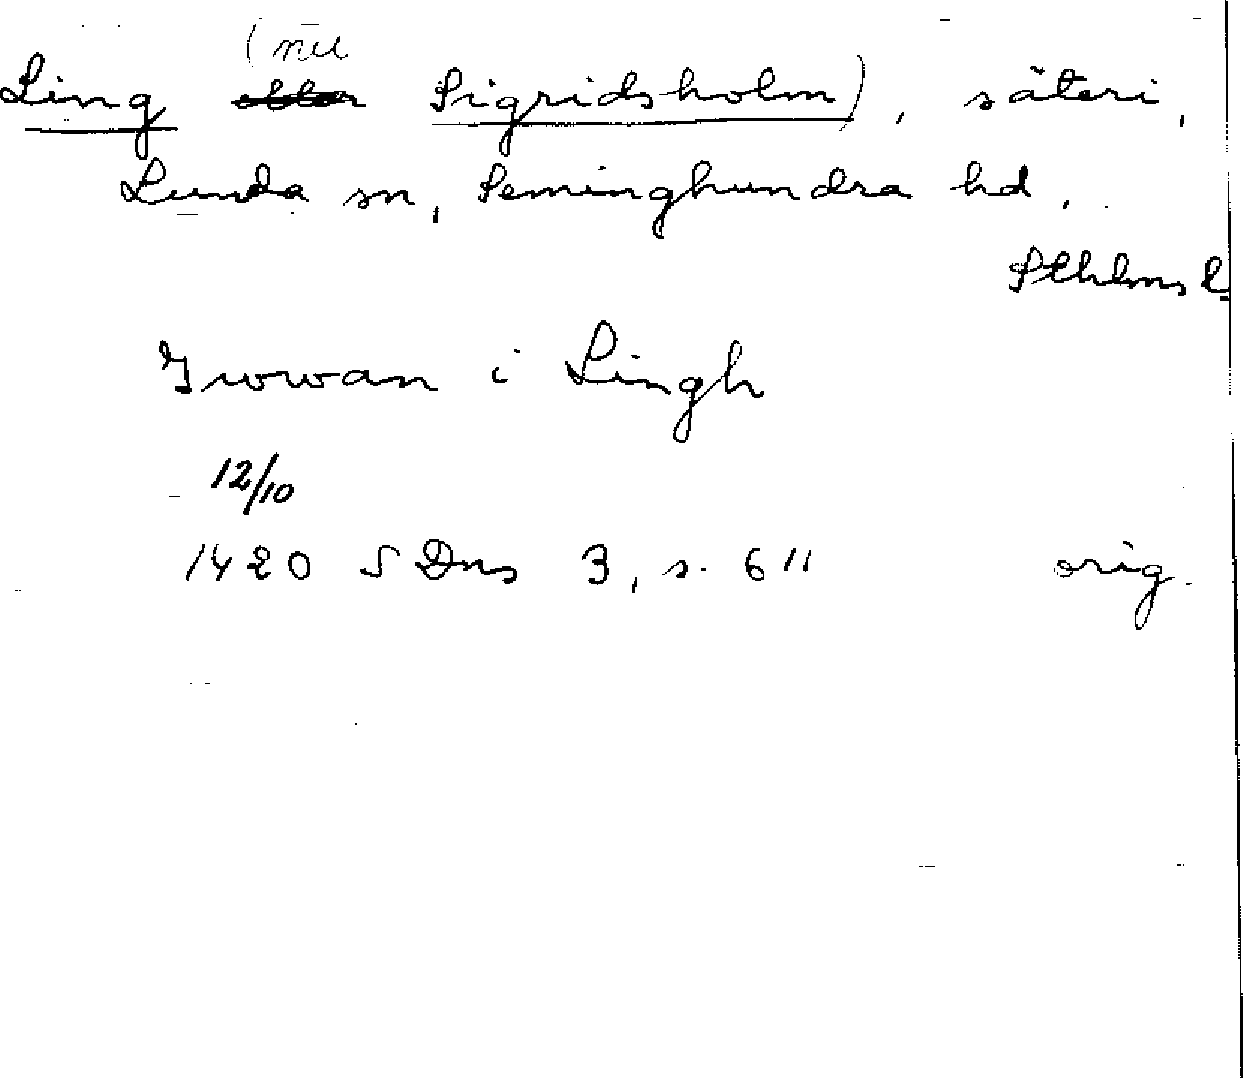 Ling (nu Sigridsholm), säteri,
Lunda sn, Seminghundra hd,
Sthlms l.
Iwwan i Lingh
12/10
1420 SDns 3, s. 611 orig.